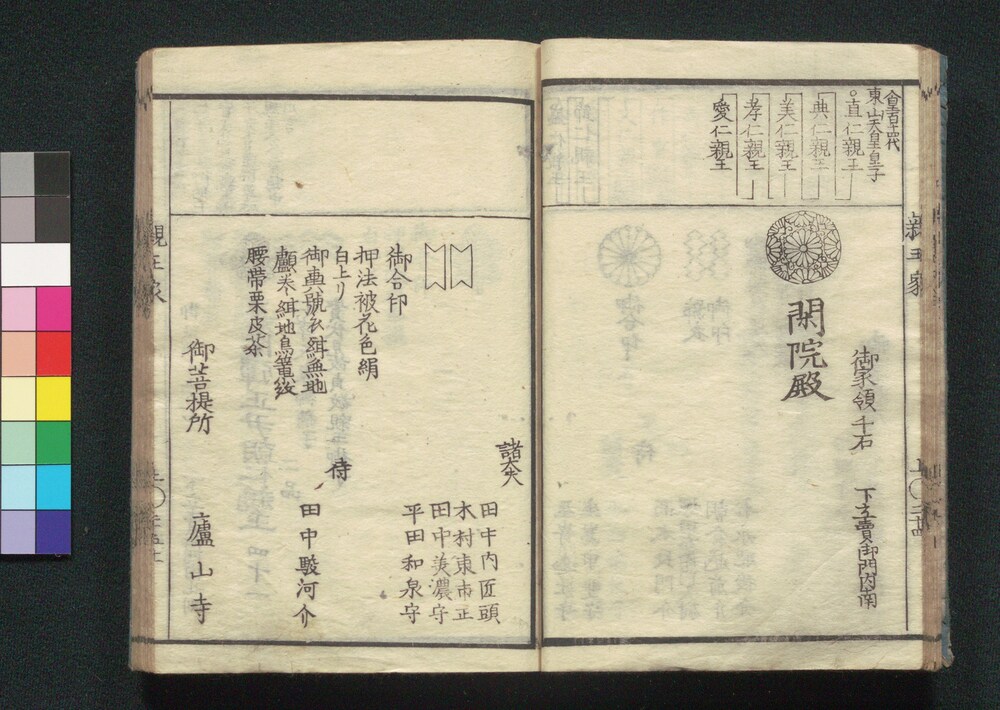 東山天皇皇子
直仁親王
典仁親王
美仁親王
孝仁親王
愛仁親王
親王家
閑院殿
御家領千石
下立賣御門内南
諸大夫
田中内匠頭
木村東市正
田中美濃守
平田和泉守
御合印
押法被花色絹
白上リ
侍
田中駿河介
腰帯栗皮茶
御菩提所
廬山寺
親王家